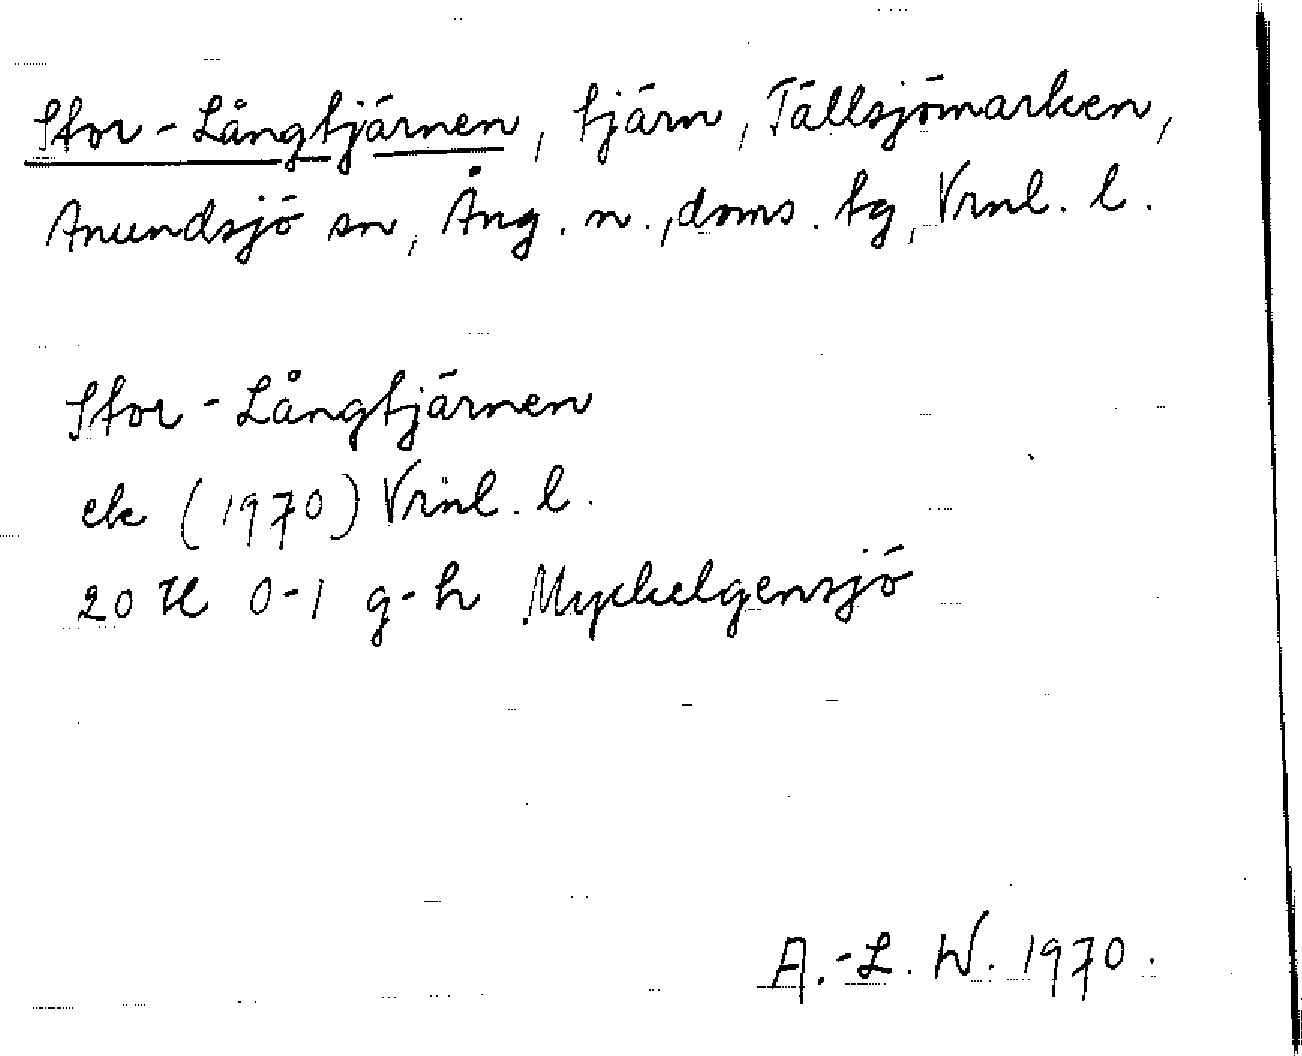 Stor-Långtjärnen, tjärn, Tällsjömarken,
Anundsjö sn, Ång. n., doms. tg, Vrnl. l.
Stor-Långtjärnen
ek (1970) Vrnl. l.
20 H 0-1 g-h Myckelgensjö
A.-L. W. 1970.